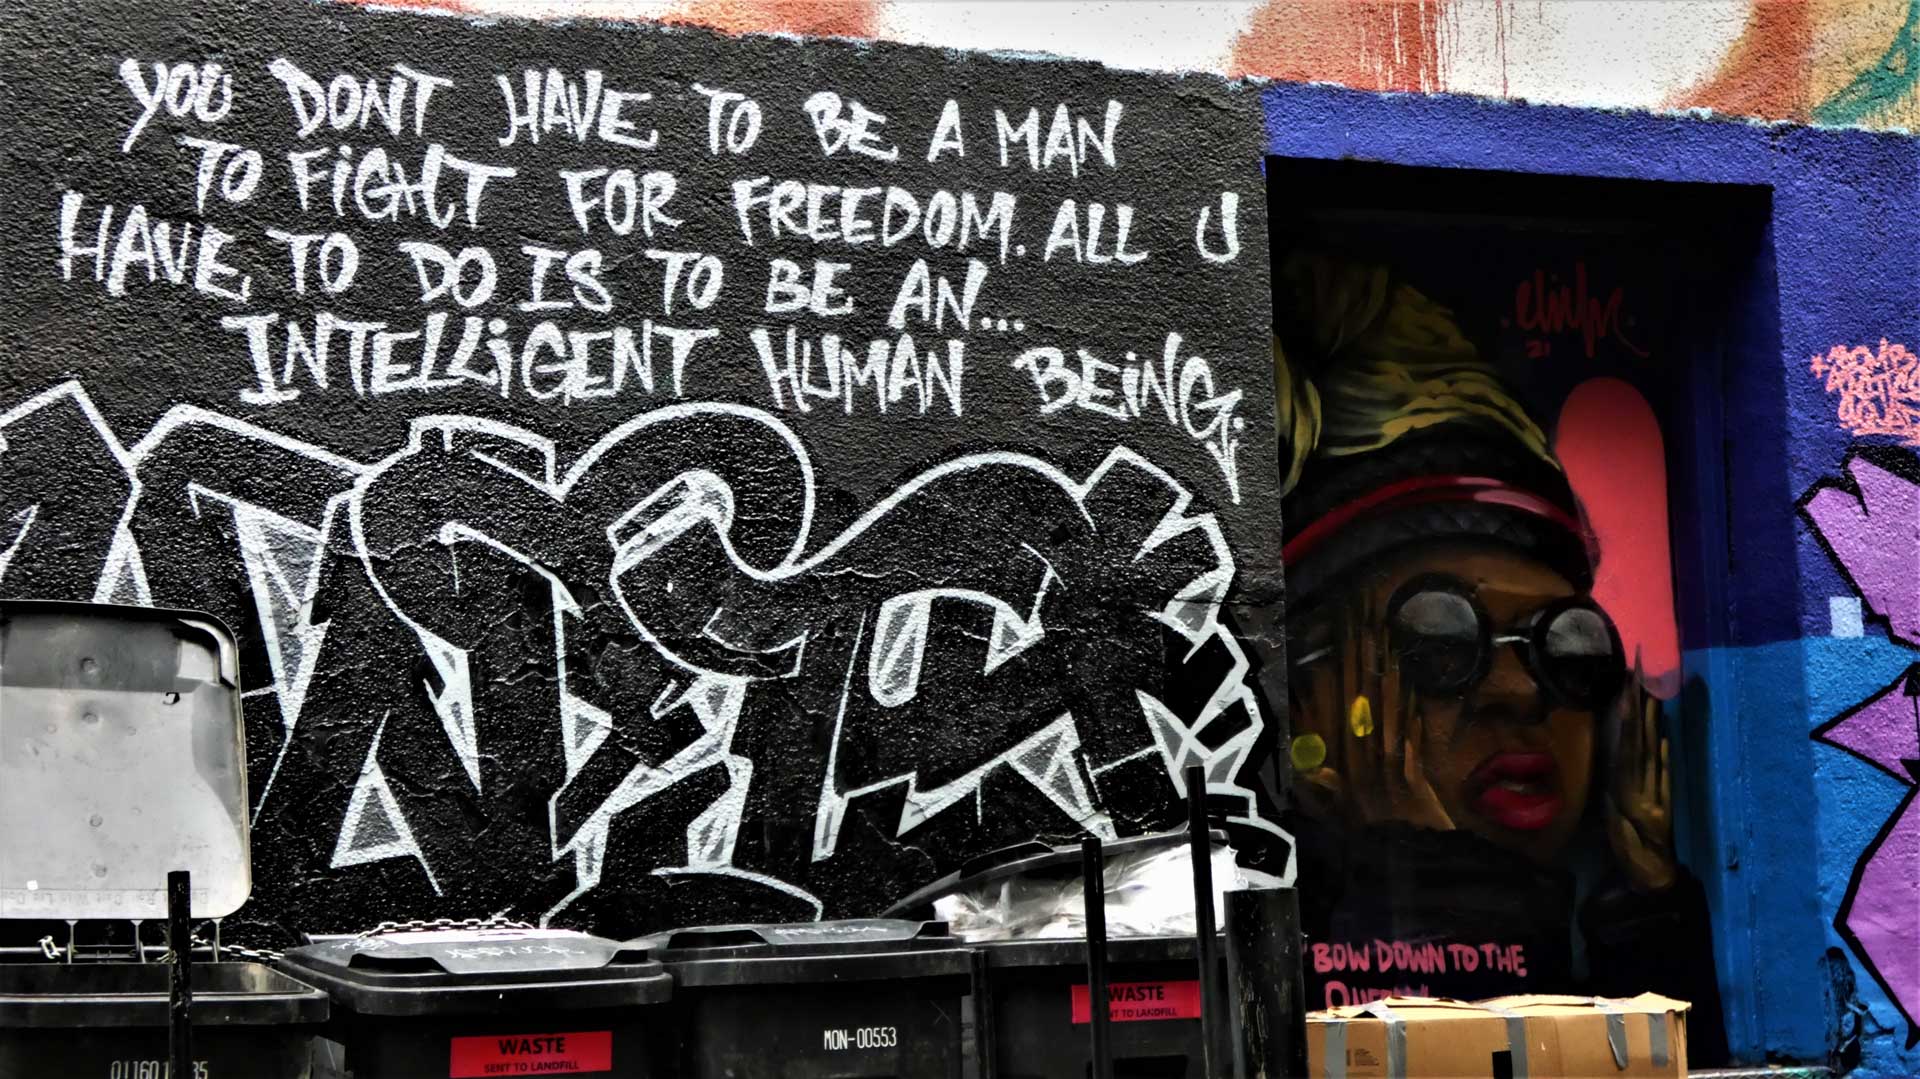 YOU DONT HAVE TO BE A MAN
TO FIGHT FOR FREEDOM. ALL U
HAVE TO DO IS TO BE AN...
INTELLIGENT HUMAN BEING.
21
BOW DOWN TO THE
WASTE
SENT TO LANDFILL
MON-00553
WASTE
NT TO LANDFILL